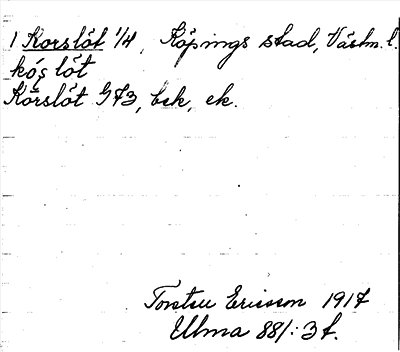 1 Korslöt 1/4, Köpings stad, Västm. l.
kós löt
Körslöt G 73, bek, ek.
Torsten Ericson 1917
Ulma 881:3 f.